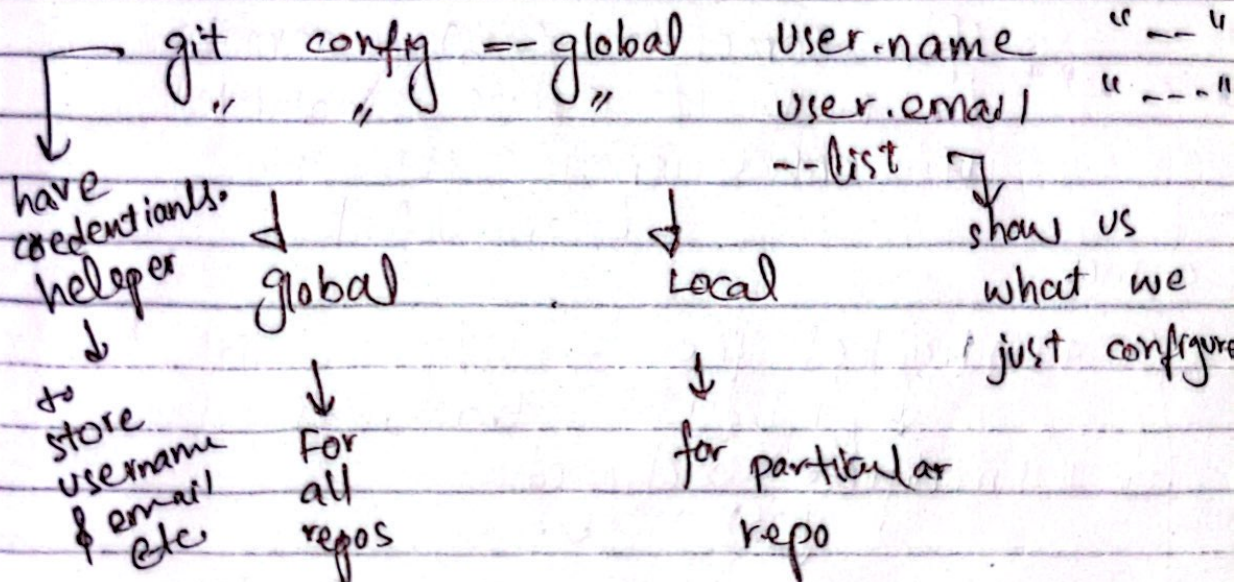 git config -- global user.name "--"
" " " user.email "---"
--list
have credentianls. heleper
to store username & email etc
global
For all repos
Local
for particular repo
show us what we just configure